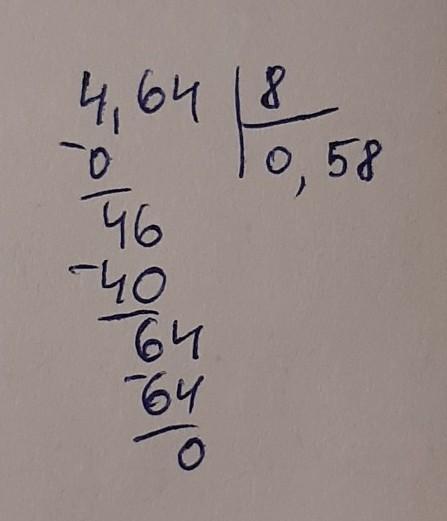 4,64 | 8
-0 | 0,58
46
-40
64
-64
0